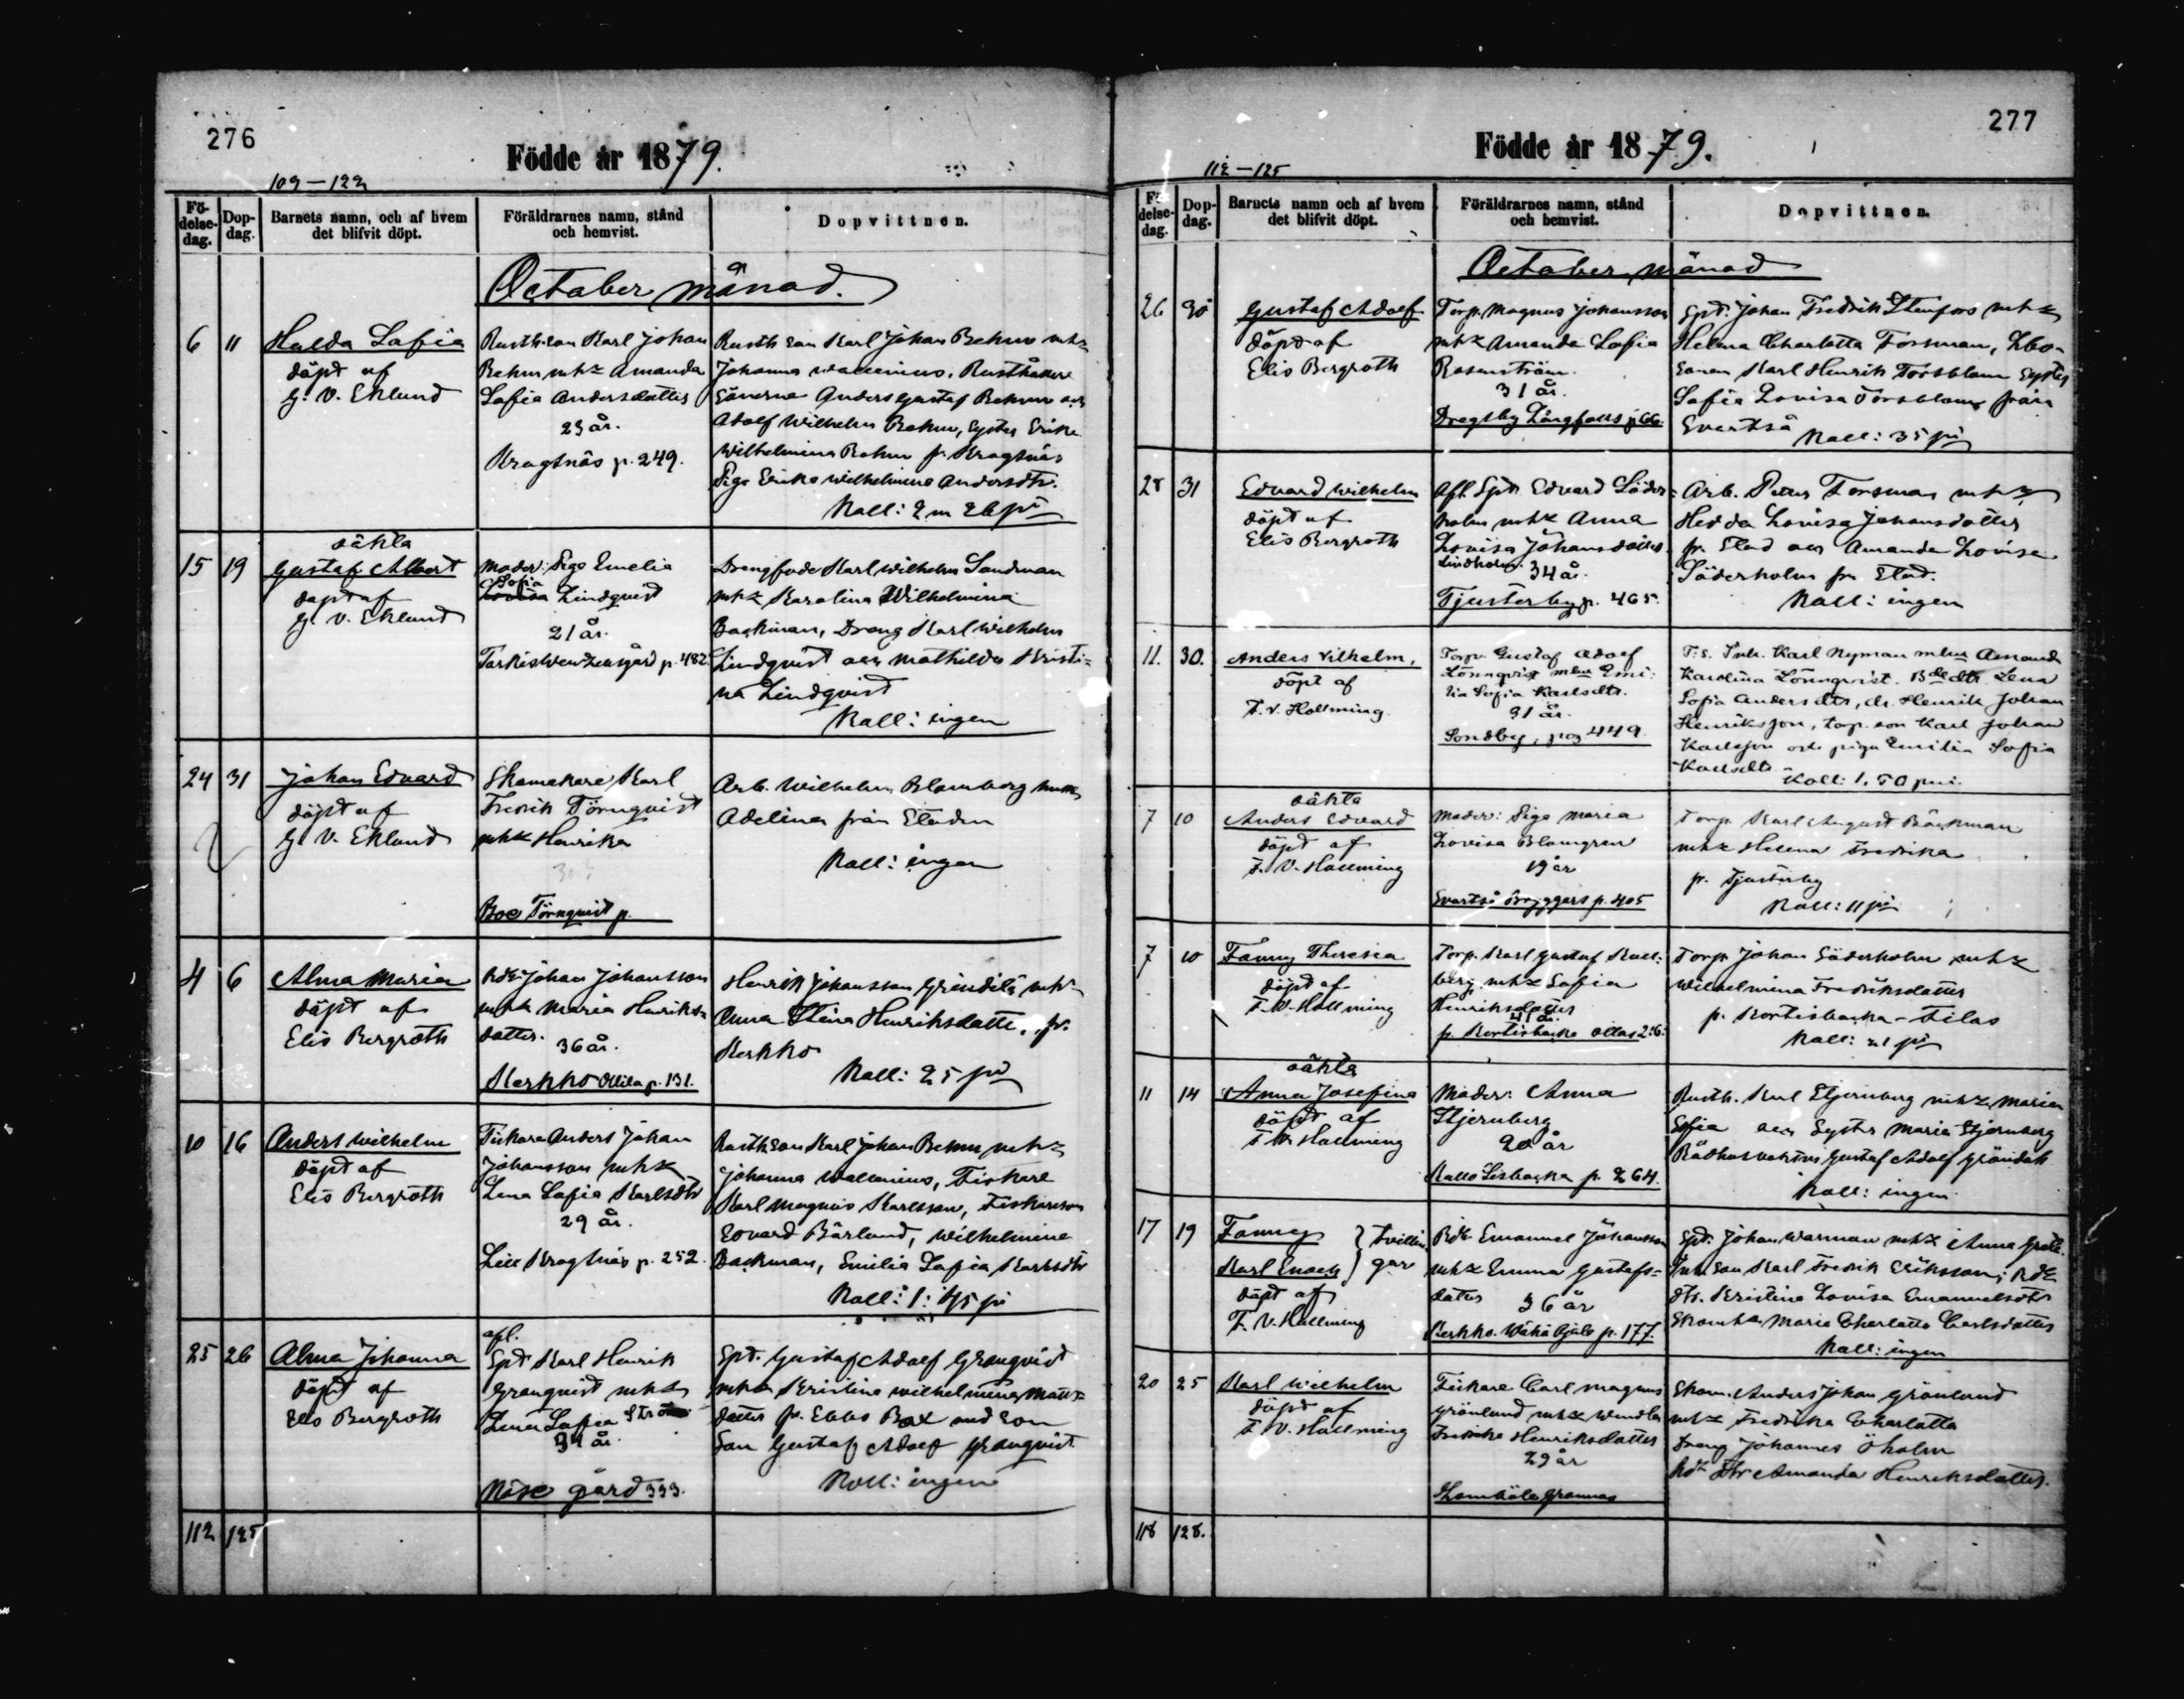 276
Födde år 1879.
109-122
Födelsedag.
Dopdag.
Barnets namn, och af hvem det blifvit döpt.
Föräldrarnes namn, stånd och hemvist.
Dopvittnen.
October månad.
6 11
Hulda Sofia
döpt af
G. V. Eklund
Rusth. son Karl Johan
Behm mhz Amanda
Sofia Andersdotter
23 år.
Kragsnäs p. 249.
Rusth son Karl Johan Behm mhz
Johanna Wallenius, Rusthållare
Sönerne Anders Gustaf Behm och
Adolf Wilhelm Behm, Syster Erika
Wilhelmina Behm fr. Kragsnäs
Piga Erika Wilhelmina Andersdtr.
Koll: 2 m 26 pi
15 19
oäkta
Gustaf Albert
döpt af
G. V. Eklund
Moder: Piga Emelia
Sofia
Lovisa Lindqvist
21 år.
p. 482
Drengfode Karl Wilhelm Sandman
mhz Karolina Wilhelmina
Backman, Dreng Karl Wilhelm
Lindqvist och Mathilda Kristi=
na Lindqvist
Koll: ingen
24 31
Johan Edvard
döpt af
G. V. Eklund
Skomakare Karl
Fredrik Törnqvist
mhz Henrika
Boe Törnqvist p.
Arb. Wilhelm Blomberg
Adelina från Staden
Koll: ingen
4 6
Alma Maria
döpt af
Elis Bergroth
Bde Johan Johansson
mhz Maria Henriks=
dotter.
36 år.
Kerkko Ollila p. 131.
Henrik Johansson Grindilä mhz
Anna Stina Henriksdotter, fr.
Kerkko
Koll: 25 pi
10 16
Anders Wilhelm
döpt af
Elis Bergroth
Fiskare Anders Johan
Johansson mhz
Lena Sofia Karlsdtr
29 år.
Lill Kragsnäs p. 252.
Rusth son Karl Johan Behm mhz
Johanna Wallenius, Fiskare
Karl Magnus Karlsson, Fiskareson
Edvard Bärlund, Wilhelmina
Backman, Emilia Sofia Karlsdtr
Koll: 1:45 pi
25 26
Alma Johanna
döpt af
Elis Bergroth
afl.
Spt. Karl Henrik
Granqvist mhz
Lena Sofia Ström
34 år.
Näse gård 333.
Spt. Gustaf Adolf Granqvist
mhz Kristina Wilhelmina Matts=
dotter fr. Ebbo Box med son
Son Gustaf Adolf Granqvist
Koll: ingen
112 125
277
Födde år 1879.
112-125
Födelsedag.
Dopdag.
Barnets namn och af hvem det blifvit döpt.
Föräldrarnes namn, stånd och hemvist.
Dopvittnen.
October månad
26 30
Gustaf Adolf
döpt af
Elis Bergroth
Torp. Magnus Johansson
mhz Amanda Sofia
Rosenström
31 år.
Dregsby Långfalls p. 66.
Spt. Johan Fredrik Stenfors mhz
Helena Charlotta Forsman, Sko-
sonen Karl Henrik Forsblom Syster
Sofia Lovisa Forsblom från
Svartså
Koll: 35 pi
28 31
Edvard Wilhelm
döpt af
Elis Bergroth
Afl. Spt. Edvard Söder=
holm mhz Anna
Lovisa Johansdotter
Lindholm. 34 år.
Tjusterby p. 465.
Arb. Petter Forsman mhz
Hedda Lovisa Johansdotter
fr. Stad och Amanda Lovisa
Söderholm fr. Stad.
Koll: ingen
11. 30.
Anders Vilhelm,
döpt af
F. V. Hollming
Torp. Gustaf Adolf
Lönnqvist mhu Emi:
lia Sofia Karlsdtr.
31 år.
Sondby, pag 449
T: s. Inh. Karl Nyman mhu Amanda
Karolina Lönnqvist. Bdedtr Lena
Sofia Andersdtr, dr. Henrik Johan
Henriksson, torp. son Karl Johan
Karlsson och piga Emilia Sofia
Karlsdtr
Koll: 1.50 pni.
7 10
oäkta
Anders Edvard
döpt af
F. V. Hollming
Moder: Piga Maria
Lovisa Blomgren
19 år
Svartså Bryggars p. 405
Torp. Karl August Bäckman
mhz Helena Fredrika
fr. Tjusterby
Koll: 11 pi
7 10
Fanny Theresia
döpt af
F. V. Hollming
Torp. Karl Gustaf Kull:
berg mhz Sofia
Henriksdotter
41 år.
fr. Kortisbacka
Torp. Johan Söderholm mhz
Wilhelmina Fredriksdotter
fr. Kortisbacka-Filas
Koll: 21 pi
11 14
oäkta
Anna Josefina
döpt af
F. V. Hollming
Moder: Anna
Stjernberg
20 år
Kallo Lisbacka p. 264.
Rusth. Karl Stjernberg mhz Maria
Sofia och Syster Maria Stjernberg
Rådhusvaktm Gustaf Adolf Gröndahl
Koll: ingen
17 19
Fanny } tvillin
Karl Enoch } gar
döpt af
F. V. Hollming
Bde Emanuel Johansson
mhz Emma Gustafs=
dotter
36 år
Kerkko. Wähä Gjäls p. 177.
Spt. Johan Warman mhz Anna
Inh. son Karl Fredrik Eriksson, Bde
dtr. Kristina Lovisa Emanuelsdtr
Maria Charlotta Carlsdotter
Koll: ingen
20 25
Karl Wilhelm
döpt af
F. V. Hollming
Fiskare Carl Magnus
Grönlund mhz Wendla
Fredrika Henriksdotter
29 år
Lomböle Grannas
Skom. Anders Johan Grönlund
mhz Fredrika Charlotta
Dreng Johannes Öholm
Bde dtr Amanda Henriksdotter.
118 128.